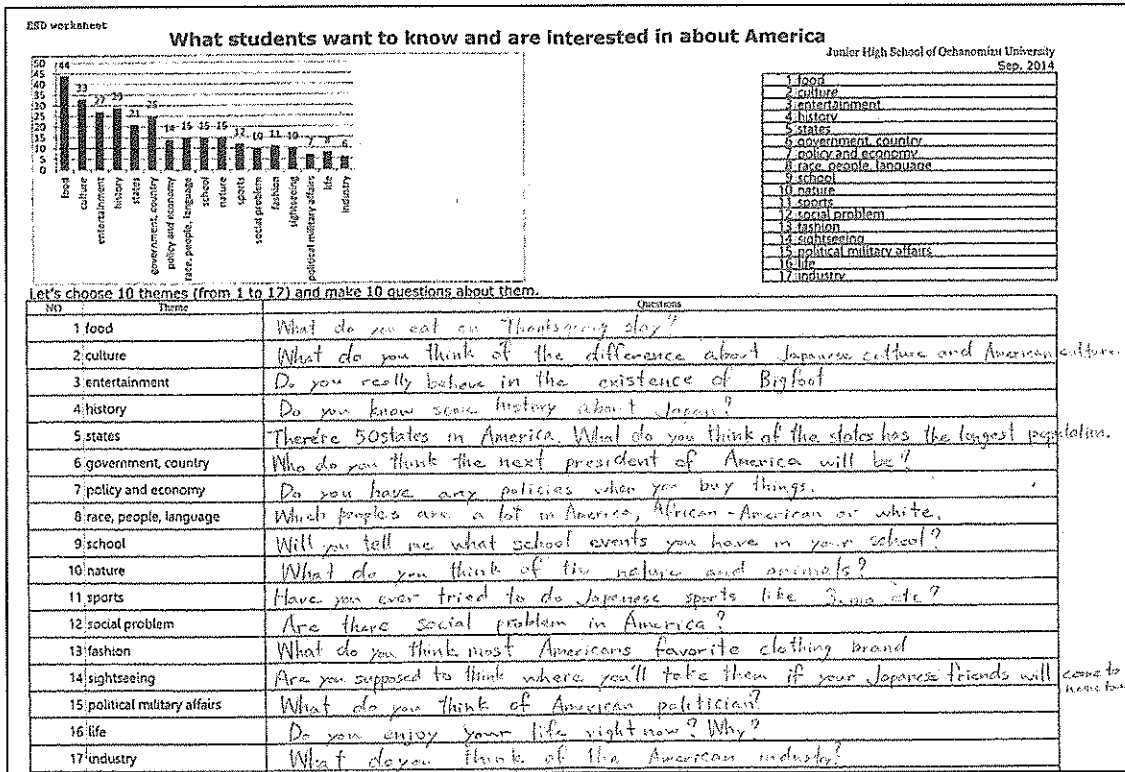 ESD worksheet
What students want to know and are interested in about America
Junior High School of Ochanomizu University
Sep. 2014
50
45
40
35
30
25
20
15
10
5
0
44
33
27
29
21
25
14
15
15
15
12
10
11
10
7
8
6
food
culture
entertainment
history
states
government, country
policy and economy
race, people, language
school
nature
sports
social problem
fashion
sightseeing
political military affairs
life
industry
1 food
2 culture
3 entertainment
4 history
5 states
6 government, country
7 policy and economy
8 race, people, language
9 school
10 nature
11 sports
12 social problem
13 fashion
14 sightseeing
15 political military affairs
16 life
17 industry
Let's choose 10 themes (from 1 to 17) and make 10 questions about them.
NO Theme Questions
1 food What do you eat on Thanksgiving day?
2 culture What do you think of the difference about Japanese culture and American culture.
3 entertainment Do you really believe in the existence of Bigfoot
4 history Do you know some history about Japan?
5 states There're 50states in America. What do you think of the states has the longest population.
6 government, country Who do you think the next president of America will be?
7 policy and economy Do you have any policies when you buy things.
8 race, people, language Which peoples are a lot in America, African-American or white.
9 school Will you tell me what school events you have in your school?
10 nature What do you think of the nature and animals?
11 sports Have you ever tried to do Japanese sports like etc?
12 social problem Are there social problem in America?
13 fashion What do you think most Americans favorite clothing brand
14 sightseeing Are you supposed to think where you'll take them if your Japanese friends will come to
15 political military affairs What do you think of American politician?
16 life Do you enjoy your life right now? Why?
17 industry What do you think of the American industry?